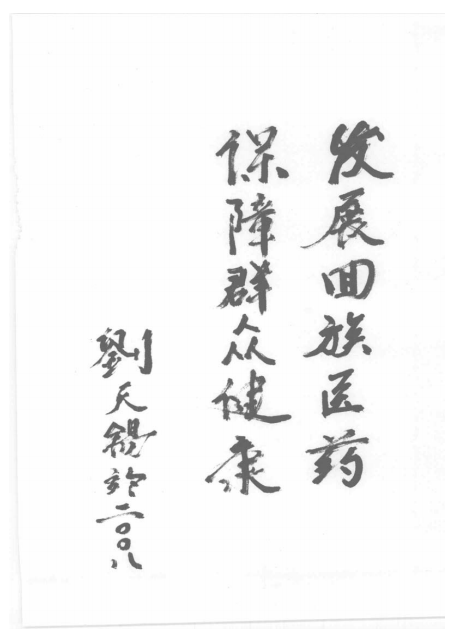 发展回族医药
保障群众健康
劉天锡於二〇〇八